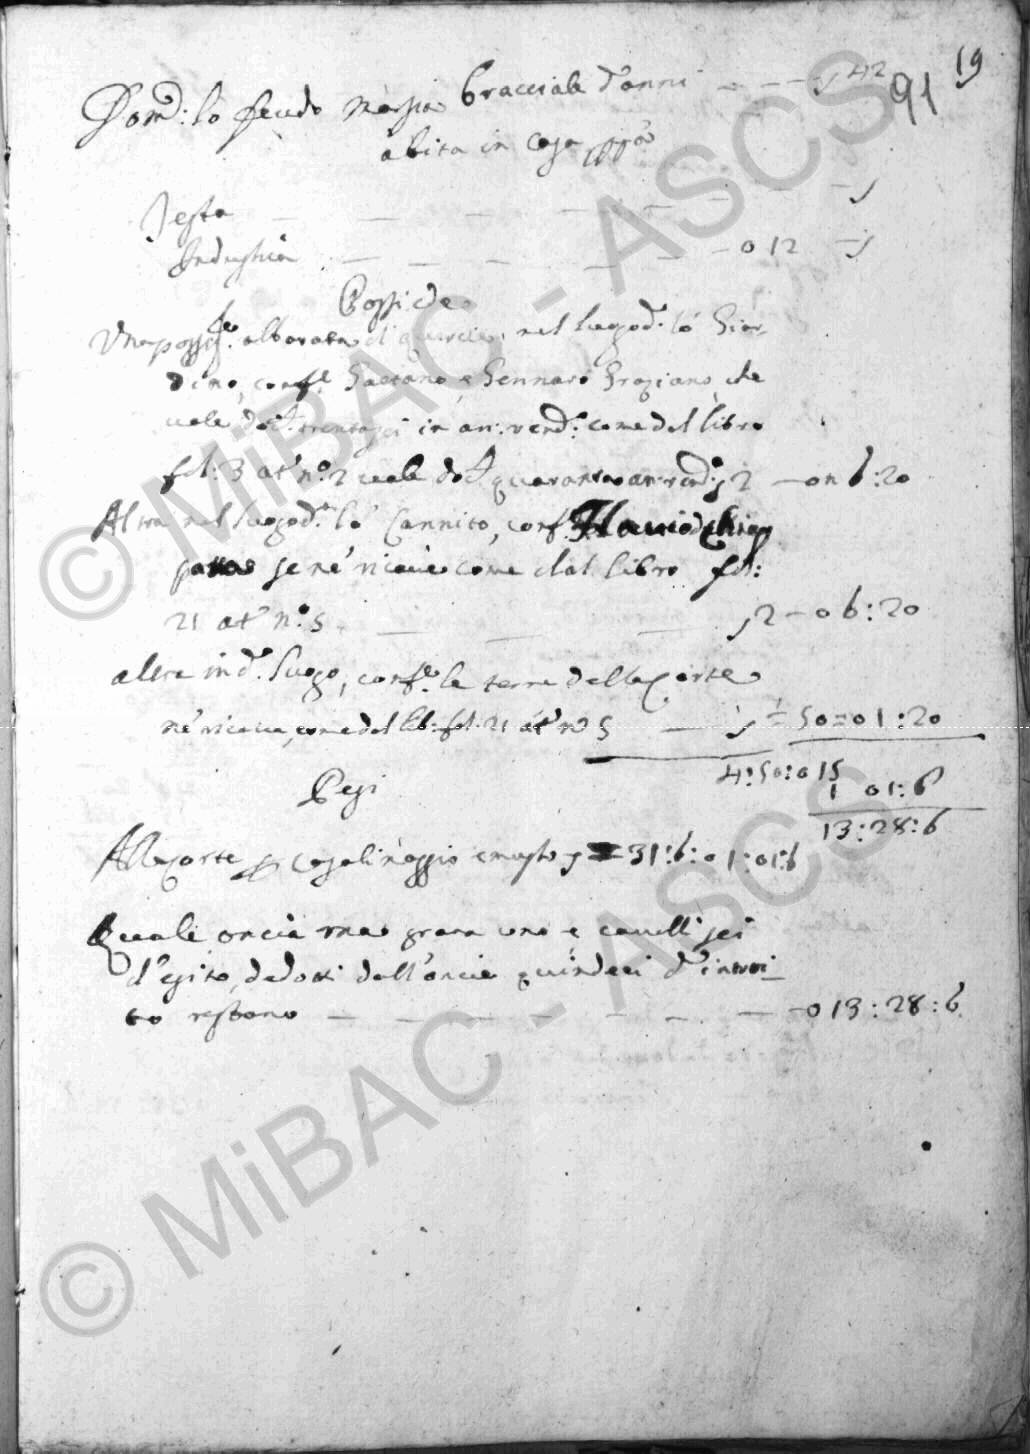 19
91
Dom:co lo feudo Marsia Bracciale d'anni — — — 42
abita in casa pp:a
Testa — — — — — —
Industria — — — — — — 012
Possiede
Una poss:e alborata di quercie, nel luogo d:o lo Giar-
dino, conf:e Gaetano, e Gennaro Graziano, che
vale doc:ti trentasei in an: rend:a come dal libro
fol: 3 at:o n:o 2 vale doc:ti quaranta an: rend:a 2 — on 6:20
Altra nel luogo d:o lo Cannito, conf:e Flavio de
se ne ricava come dal libro fol:
21 at:o n:o 5 — — — 2 — o 6:20
altra in d:o luogo, conf:e le terre della Corte
ne ricava, come dal lib: fol: 21 at:o n:o 5 — = 50 = 01:20
4:50:015
1 01:6
13:28:6
Pesi
Alla Corte p casalinaggio 31:6:01:01:6
Quale oncia una grana uno e cavalli sei
d'esito, dedotti dall'oncie quindeci d'introi-
to restano — — — — — — — 013:28:6
© MiBAC - ASCS
© MiBAC - ASCS